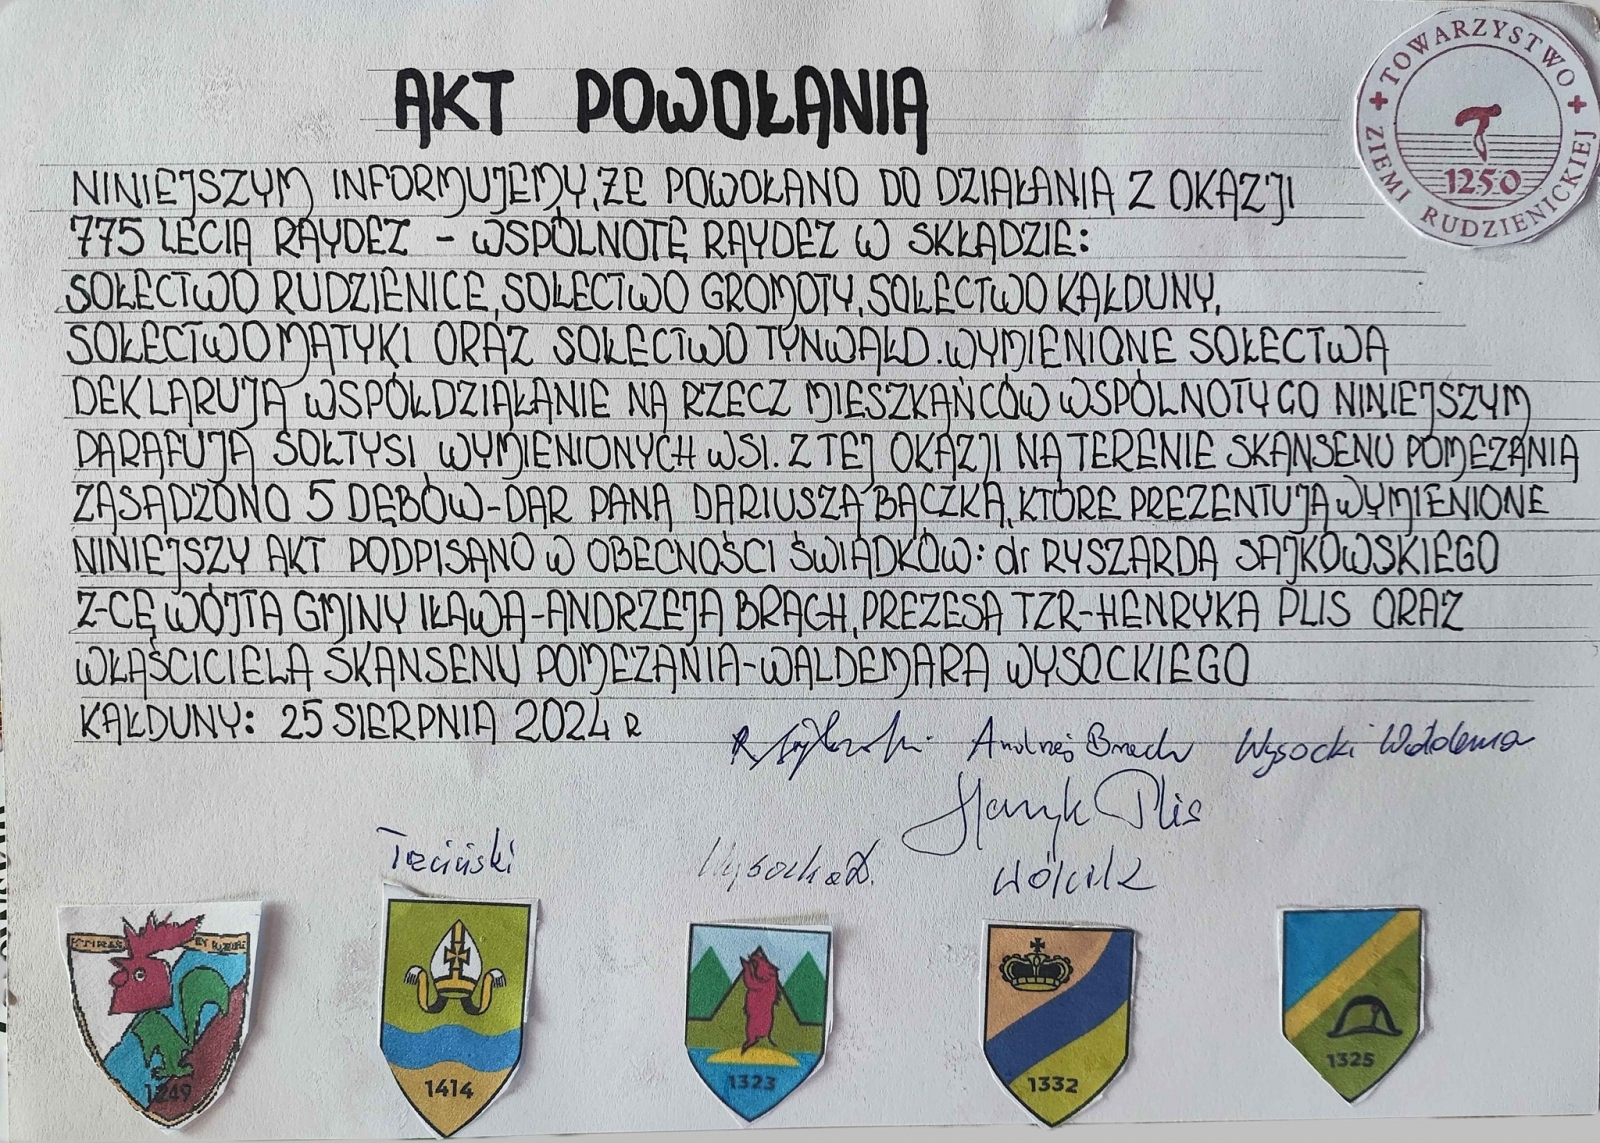 AKT POWOŁANIA
TOWARZYSTWO
ZIEMI RUDZIENICKIEJ
1250
NINIEJSZYM INFORMUJEMY, ŻE POWOŁANO DO DZIAŁANIA Z OKAZJI
775 LECIA RAYDEZ - WSPÓLNOTĘ RAYDEZ W SKŁADZIE:
SOŁECTWO RUDZIENICE, SOŁECTWO GROMOTY, SOŁECTWO KAŁDUNY,
SOŁECTWO MĄTYKI ORAZ SOŁECTWO TYNWAŁD. WYMIENIONE SOŁECTWA
DEKLARUJĄ WSPÓŁDZIAŁANIE NA RZECZ MIESZKAŃCÓW WSPÓLNOTY CO NINIEJSZYM
PARAFUJĄ SOŁTYSI WYMIENIONYCH WSI. Z TEJ OKAZJI NA TERENIE SKANSENU POMEZANIA
ZASADZONO 5 DĘBÓW-DAR PANA DARIUSZA BĄCZKA, KTÓRE PREZENTUJĄ WYMIENIONE
NINIEJSZY AKT PODPISANO W OBECNOŚCI ŚWIADKÓW: dr RYSZARDA SAJKOWSKIEGO
Z-CĘ WÓJTA GMINY IŁAWA-ANDRZEJA BRACH, PREZESA TZR-HENRYKA PLIS ORAZ
WŁAŚCICIELA SKANSENU POMEZANIA-WALDEMARA WYSOCKIEGO
KAŁDUNY: 25 SIERPNIA 2024 R
Andrzej Brach Wysocki
Plis
Wysocka
Wójcik
1249
1414
1323
1332
1325